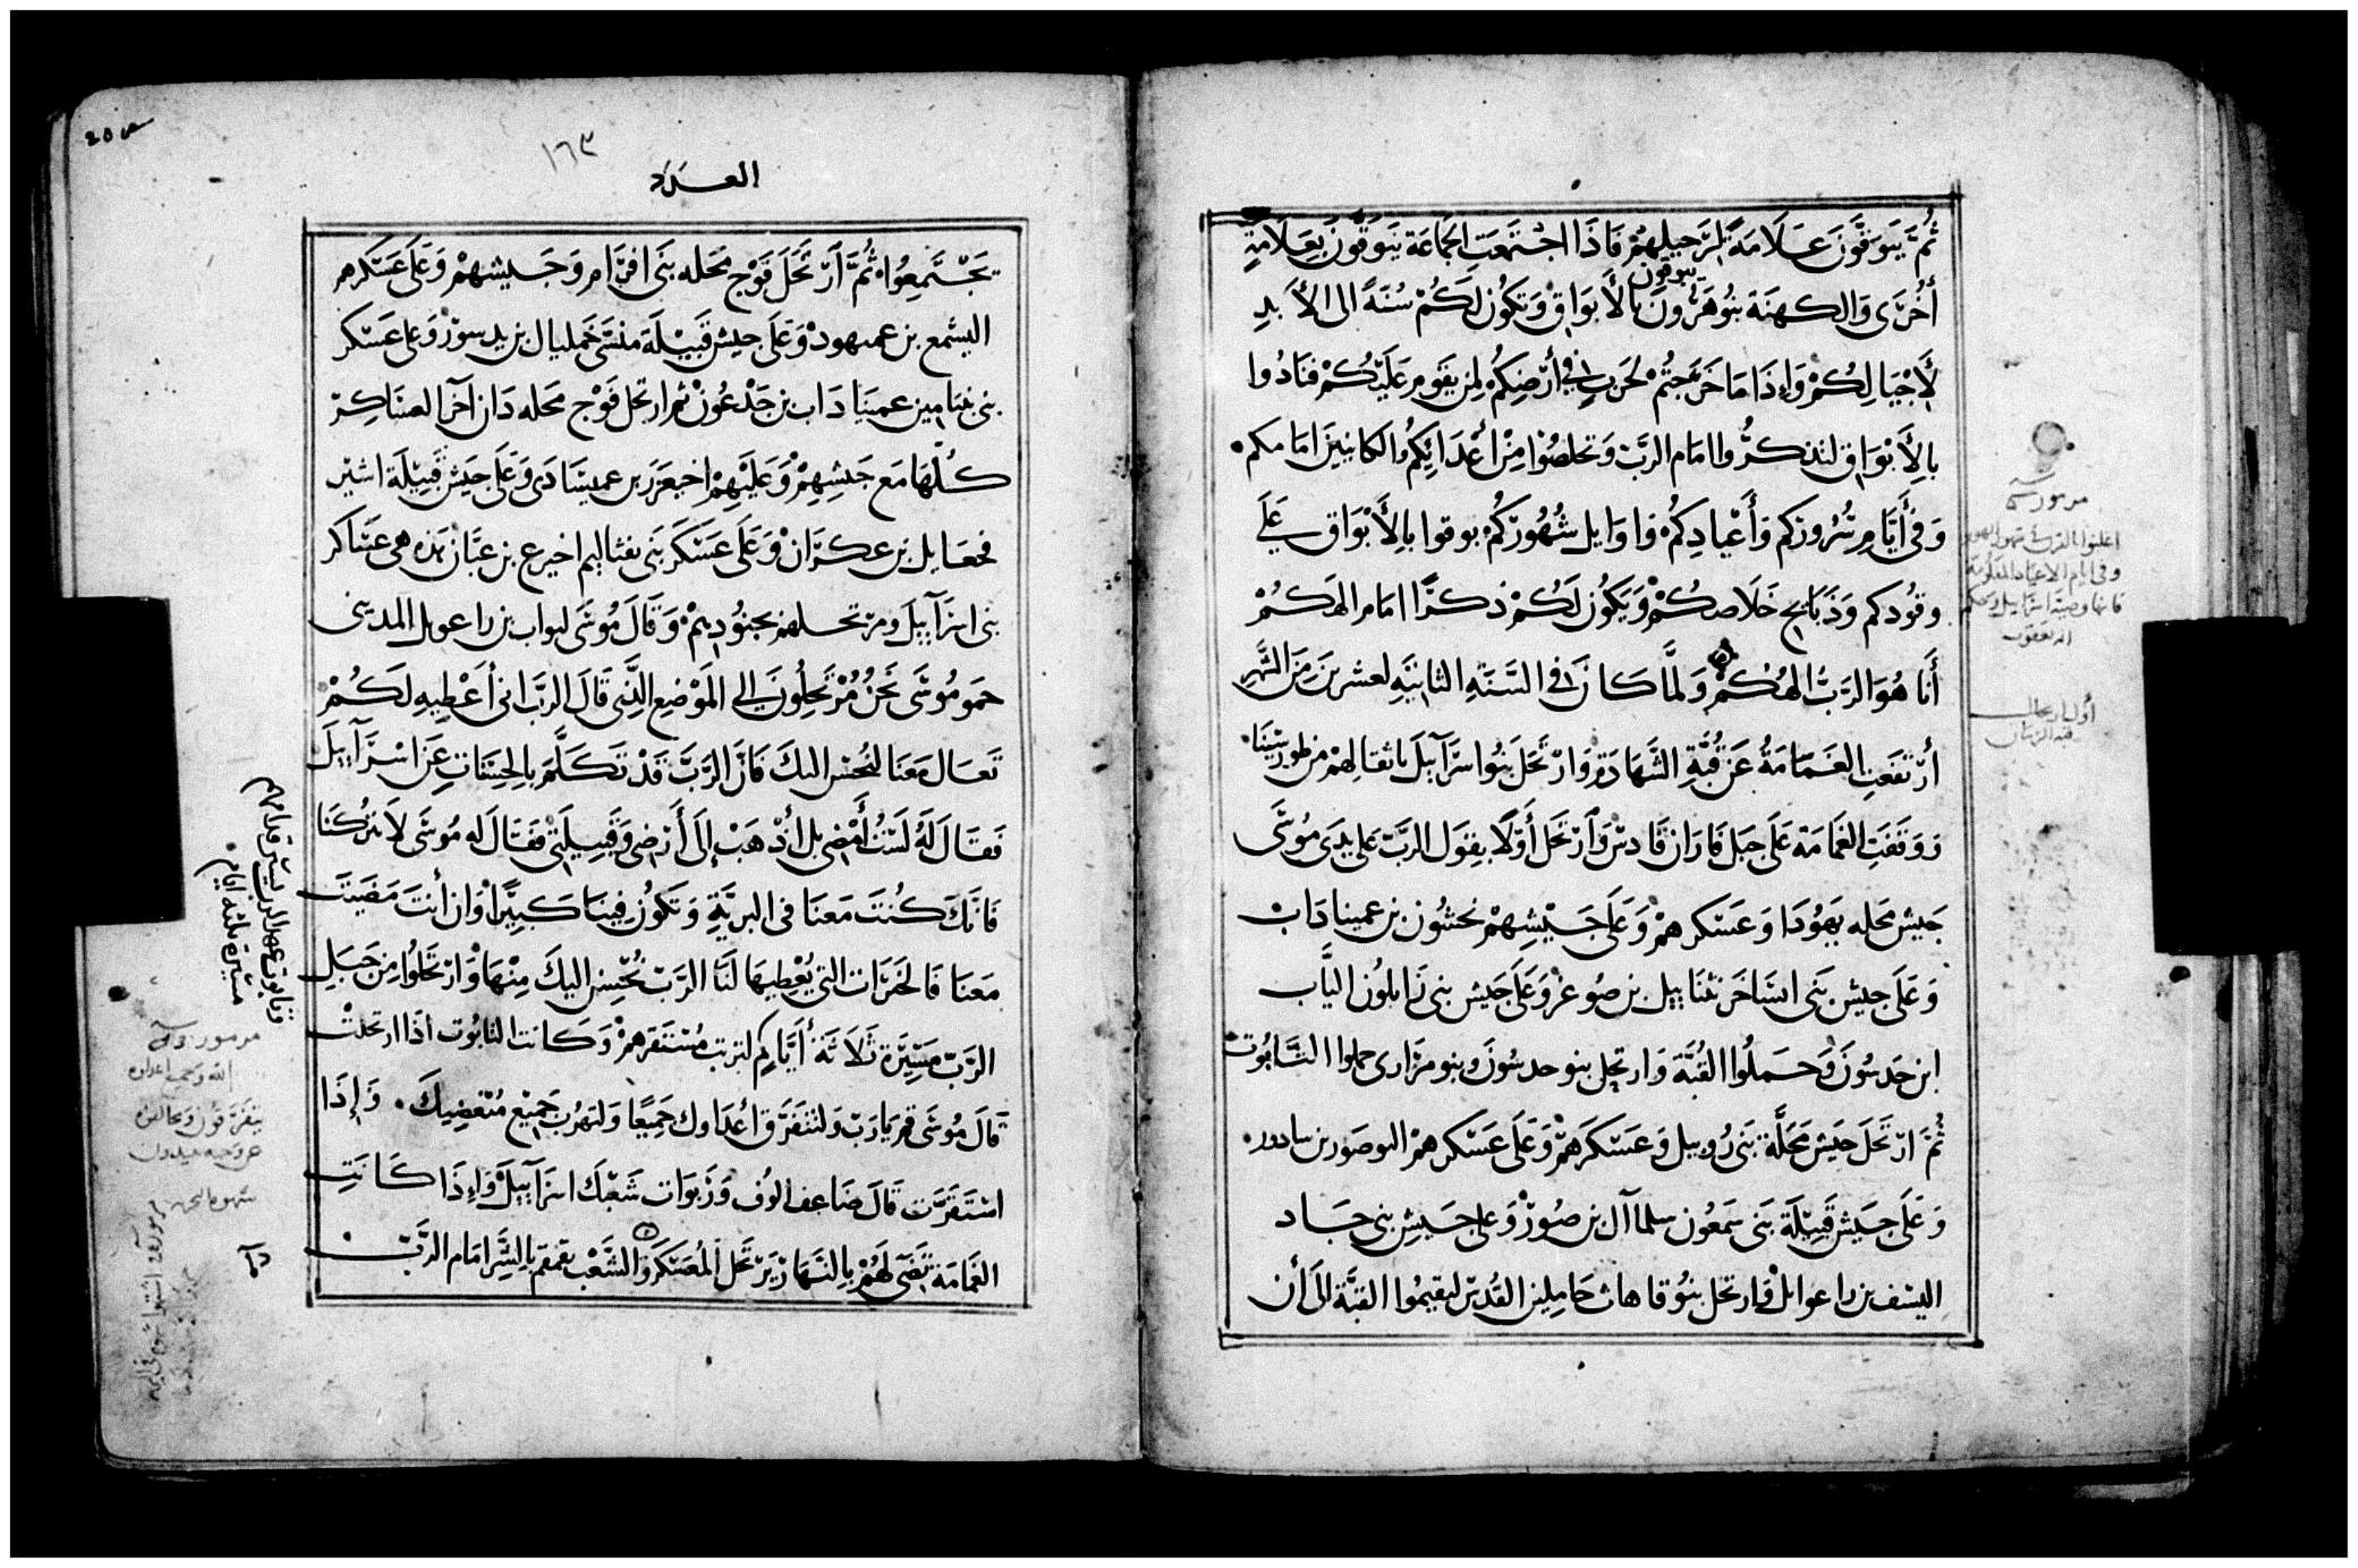 ثُمَّ يَبَوِقُونَ عَلَامَةً لِرَحِيلِهِمْ فَاذَا اجْتَمَعَتِ الجَمَاعَة يَبَوِقُونَ بِعَلَامَةٍ
يبوقون
أُخْرَى وَالكهنَة بَنُو هَرُونَ بالأَبوَاقْ وَتكُون لَكُمْ سُنَةً الى الأَبدِ
لأَجْيَالِكُمْ وَاءِذَا مَا خَرَجتُمْ لحَربٍ فِي أَرْضِكُمْ لِمن يَقوم عَلَيْكُمْ فَنَادُوا
بالأَبْوَاق لتذكرُوا امَام الرَبّ وَتخلصُوا مِنْ أَعْدَائِكُم الكاينينَ امَامكم
وَفِي أَيَّامِ سُرُوركم وَأَعْيَادِكُم وَاوَايل شُهُورَكُمْ بوقوا بالأَبْوَاق عَلَي
وقودكم وَذبَايح خَلَاصكُمْ وَيَكُون لَكُمْ ذكرًا امَام الهَكُمْ
أَنَا هُوَ الرَبُّ الهُكُمْ وَلمَّا كَانَ فى السَّنَةِ الثانيَةِ لعشرينَ مِنَ الشَّهْرِ
أرْتَفَعَتِ الغَمَامَةُ عَن قُبَّةِ الشَّهَادَةِ وَارْتَحَلَ بَنُوا اسرَآييلَ باثقَالِهِمْ من طورسِيْنَا
وَوَقَفَتِ الغَمَامَة عَلَى جَبَل فَارَان قَادسْ وَارْتحَل أَوَّلًا بقول الرَبّ على يدى مُوسَى
جَيش محَله يهوُدَا وَعَسْكرهمْ وَعَلَى جَيْشِهِمْ نحشون بن عمينا دَابْ
وَعَلَى جيش بَنى ايسَاخَر نثنَاييل بن صوغرْ وَعَلَى جَيش بنى زَابلوُن اليَّاب
ابن حَدسُونَ وَحَملُوا القُبَّةَ وَارتحل بنو حدسُونَ وبنو مَرَارى حملوا التَّابُوت
ثُمَّ ارْتَحَلَ جَيْش مَحَلَّة بَنى رُوبيل وَعَسْكَرَهمْ وَعَلَى عَسْكرهمْ اليوصَور بن سادور
وَعَلَى جَيْش قَبِيْلَة بَنى سَمَعُون سلماآل بن صُورْ وَعلى جَيْشِ بنى جَاد
اليسف بن راعوايلْ وارتحل بنُو قاهات حَامِلين القُدس ليقيمُوا القبَّة الى أن
مزمور
اعلنوا
وفى ايام الاعياد المعلومة
اله يعقوب
أول ارتحال
قبة الزمان
١٦٣
العدد
يَجْتَمِعُوا ثُمَّ اَرْتَحَلَ فَوْج مَحَله بَنى افرَام وَجَيشهمْ وَعَلَى عَسْكَرهم
اليشمع بن عميهودْ وَعَلَى جيش قَبِيْلَة منسَّى خمليال بن يدسورْ وَعلى عَسْكر
بنى بنيَامِين عمينَادَاب بن جَدْعُونْ ثم ارتحل فَوْج محَله دَان آخر العسَاكِر
كلُهَا مَع جَيشِهِمْ وَعَلَيْهِمْ اخيعَزَر بن عميشَادى وَعَلَى جَيْش قَبِيْلَة اشير
فجعَايل بن عكرَانْ وَعَلَى عَسْكَر بَنى نفثاليم اخيرع بن عينَانْ هَذه هى عَسَاكر
بنى اسرَآييلَ ومرْتحَلهم بجنُودِهِمْ وَقَالَ مُوسَى ليواب بن راعويل المدينى
حمو مُوسَى نحْنُ مُرْتَحِلُونَ إلى المَوْضِع الَّذِى قَالَ الرَبَّ انى أعْطِيهِ لَكُمْ
تَعَال مَعَنَا لنُحسن اليكَ فَانَّ الرَّبَّ قَدْ تَكَلَّمَ بالحِسَنَاتِ عَن اسْرَآييلَ
فَقَالَ لَهُ لَسْتُ أَمْضِى بل أذْهَبْ إلَى أَرْضِى وَقَبِيلَتِى فَقَالَ له مُوسَى لَا تتْرُكنَا
فَانَّكَ كُنْتَ مَعَنَا فى البريَّةِ وَتَكُونُ فِينَا كَبِيْرًا وَان أَنتَ مَضَيتَ
مَعَنَا فَالخَيرَات التى يُعْطِيهَا لنَا الرَبّ نُحْسِن اليكَ مِنْهَا وَارْتَحَلُوا مِنْ جَبَلِ
الرَبّ مَسِيْرَة ثَلَاثَة أيَّام لترتب مُسْتَقَرهمْ وَكَانت التابُوت اذَا ارتحلتْ
قَالَ مُوسَى قم يَارَبّ وَلتتفَرَّق أعْدَاوك جَمِيعًا وَلتهرُب جَمِيْع مُبْغضِيكَ وَإِذَا
اسْتَقَرَّت قَالَ ضَاعف الوُف وَرَبوَات شَعْبكَ اسرَآييلَ وَإِذَا كَانَتِ
الغَمَامَة تضى لَهُمْ بالنَهَار يَرْتَحل المُعَسْكَر وَالشَّعْب يقمقم بالشرِّ امَام الرَّبّ
وتابوت عهد الرب يسير قدامهم
مسيرة ثلثه ايام
مزمور
الله وجميع اعداوه